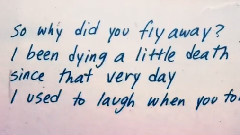 So why did you fly away?
I been dying a little death
since that very day
I used to laugh when you to